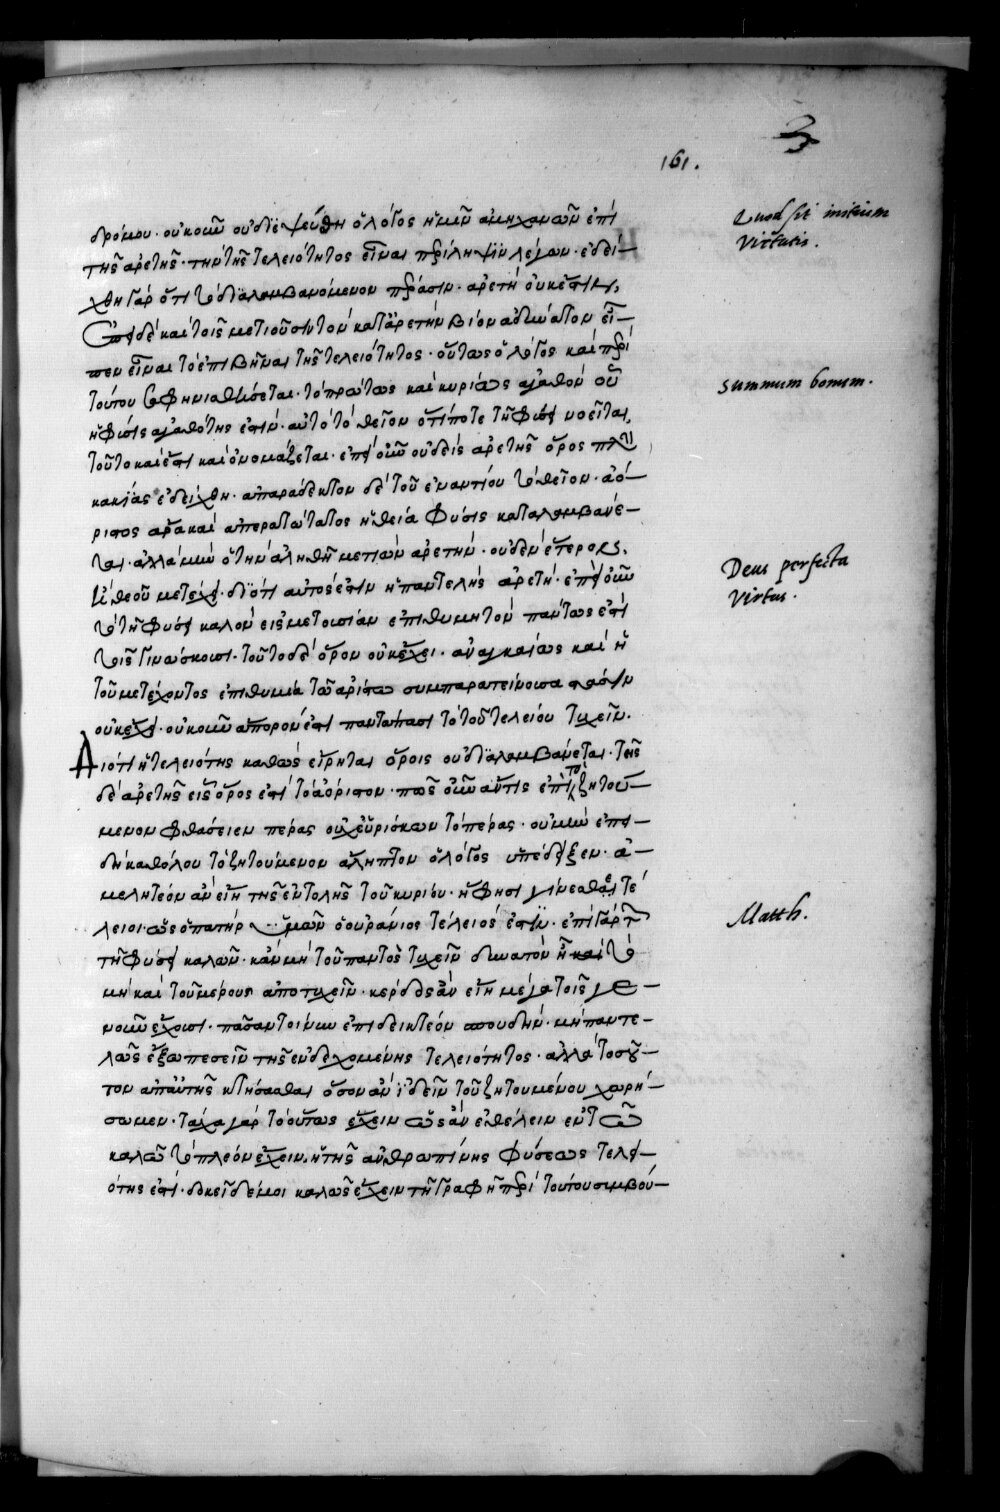 161.
δρόμου· οὐκοῦν οὐδὲ ἐψεύσθη ὁ λόγος ἡμῶν ἀμήχανων ἐπὶ
τῆς ἀρετῆς· τὴν τῆς τελειότητος εἶναι περίληψιν λέγων· ἐδεί-
χθη γὰρ ὅτι τὸ διαλαμβανόμενον πέρασιν· ἀρετὴ οὐκ ἔστιν,
δὲ καὶ τοῖς μετιοῦσιν τὸν κατ' ἀρετὴν βίον ἀδύνατον εἶ-
πον εἶναι τὸ ἐπιβῆναι τῆς τελειότητος· οὕτως ὁ λόγος καὶ περὶ
τούτου σαφηνισθήσεται· τὸ πρώτως καὶ κυρίως ἀγαθόν οὗ
ἡ φύσις ἀγαθότης ἐστίν· αὐτὸ τὸ θεῖον ὅτί ποτε τῇ φύσει νοεῖται,
τοῦτο καὶ ἔστι καὶ ὀνομάζεται· ἐπεὶ οὖν οὐδεὶς ἀρετῆς ὅρος πλὴν
κακίας ἐδείχθη· ἀπαράδεκτον δὲ τοῦ ἐναντίου τὸ θεῖον· ἀό-
ριστος ἄρα καὶ ἀπερατώτατος ἡ θεία φύσις καταλαμβάνε-
ται· ἀλλὰ μὴν ὁ τὴν ἀληθῆ μετιὼν ἀρετήν· οὐδὲν ἕτερον
ἢ θεοῦ μετέχει· διότι αὐτός ἐστιν ἡ παντελὴς ἀρετή· ἐπεὶ οὖν
τὸ τῇ φύσει καλὸν εἰς μετουσίαν ἐπιθυμητὸν πάντως ἐστὶ
τοῖς γινώσκουσι· τοῦτο δὲ ὅρον οὐκ ἔχει· ἀναγκαίως καὶ ἡ
τοῦ μετέχοντος ἐπιθυμία τῷ ἀορίστω συμπαρατείνουσα στάσιν
οὐκ ἔχει· οὐκοῦν ἄπορόν ἐστι παντάπασι τὸ τοῦ τελείου τυχεῖν·
Διότι ἡ τελειότης καθὼς εἴρηται ὅροις οὐ διαλαμβάνεται· τῆς
δὲ ἀρετῆς εἷς ὅρος ἐστὶ τὸ ἀόριστον· πῶς οὖν ἄν τις ἐπὶ τὸ ζητού-
μενον φθάσειεν πέρας οὐχ εὑρίσκων τὸ πέρας· οὐ μὴν ἐπει-
δὴ καθόλου τὸ ζητούμενον ἄληπτον ὁ λόγος ὑπέδειξεν· ἀ-
μελητέον ἂν εἴη τῆς ἐντολῆς τοῦ κυρίου· ἥ φησι γίνεσθαι τέ
λειοι· ὡς ὁ πατὴρ ὑμῶν ὁ οὐράνιος τέλειός ἐστιν· ἐπὶ γὰρ τῶν
τῇ φύσει καλῶν· κἂν μὴ τοῦ παντὸς τυχεῖν δυνατὸν ᾖ καὶ τὸ
μὴ καὶ τοῦ μέρους ἀποτυχεῖν· κέρδος ἂν εἴη μέγα τοῖς γε
νοῦν ἔχουσι· πᾶσαν τοίνυν ἐπιδεικτέον σπουδήν· μὴ παντε-
λῶς ἐξωπεσεῖν τῆς ἐνδεχομένης τελειότητος· ἀλλὰ τοσοῦ-
τον ἀπ' αὐτῆς κτήσασθαι ὅσον ἂν ἰδεῖν τοῦ ζητουμένου χωρή-
σωμεν· τάχα γὰρ τὸ οὕτως ἔχειν ὡς ἂν ἐθέλειν ἐν τῷ
καλῷ τὸ πλέον ἔχειν· ἡ τῆς ἀνθρωπίνης φύσεως τελει-
ότης ἐστί· δοκεῖ δέ μοι καλῶς ἔχειν τῇ γραφῇ περὶ τούτου συμβού-
Quod sit initium
Virtutis.
summum bonum.
Deus perfecta
Virtus.
Matth.